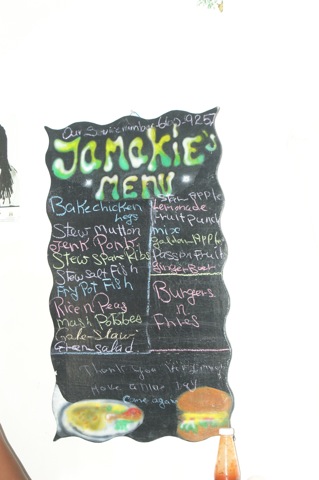 Our Service number 610-9257
JAMAKIE's
MENU
Bake chicken
Legs
Stew Mutton
Jerk Pork
Stew Spare Ribs
Stew salt Fish
Fry Pot Fish
Rice n Peas
Mash Potatoes
Cole-Slaw
Green Salad
Apple
Lemonade
Fruit Punch
mix
golden Apple
Passon Fruit
Ginger Beer
Burgers
n
Fries
Thank you
Have a nice
Come again